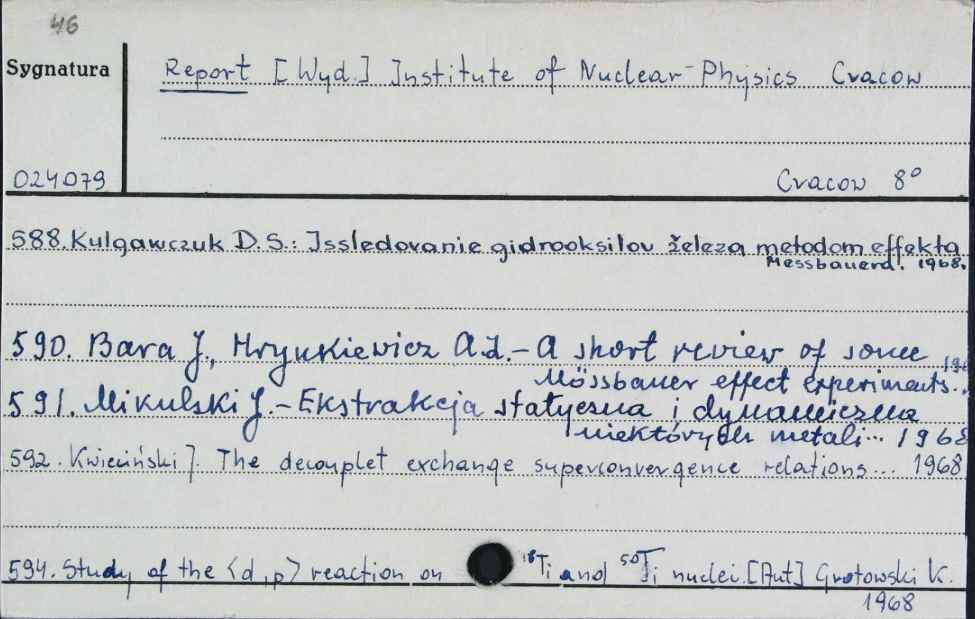 46
Sygnatura
Report [Wyd.] Institute of Nuclear Physics Cracow
024079
Cracow 8°
588. Kulgawczuk D.S.: Issledovanie gidrooksilov železa metodom effekta
Messbauera. 1968.
590. Bara J., Hrynkiewicz A.Z. - A short review of some
Mössbauer effect experiments...
591. Mikulski J. - Ekstrakcja statyczna i dynamiczna
niektórych metali... 1968
592. Kwieciński J. The decouplet exchange superconvergence relations... 1968
594. Study of the <d,p> reaction on Ti and 50Ti nuclei. [Aut] Grotowski K.
1968